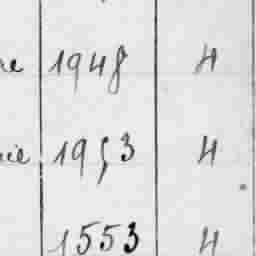 re 1948 H
nie 1953 H
1553 H